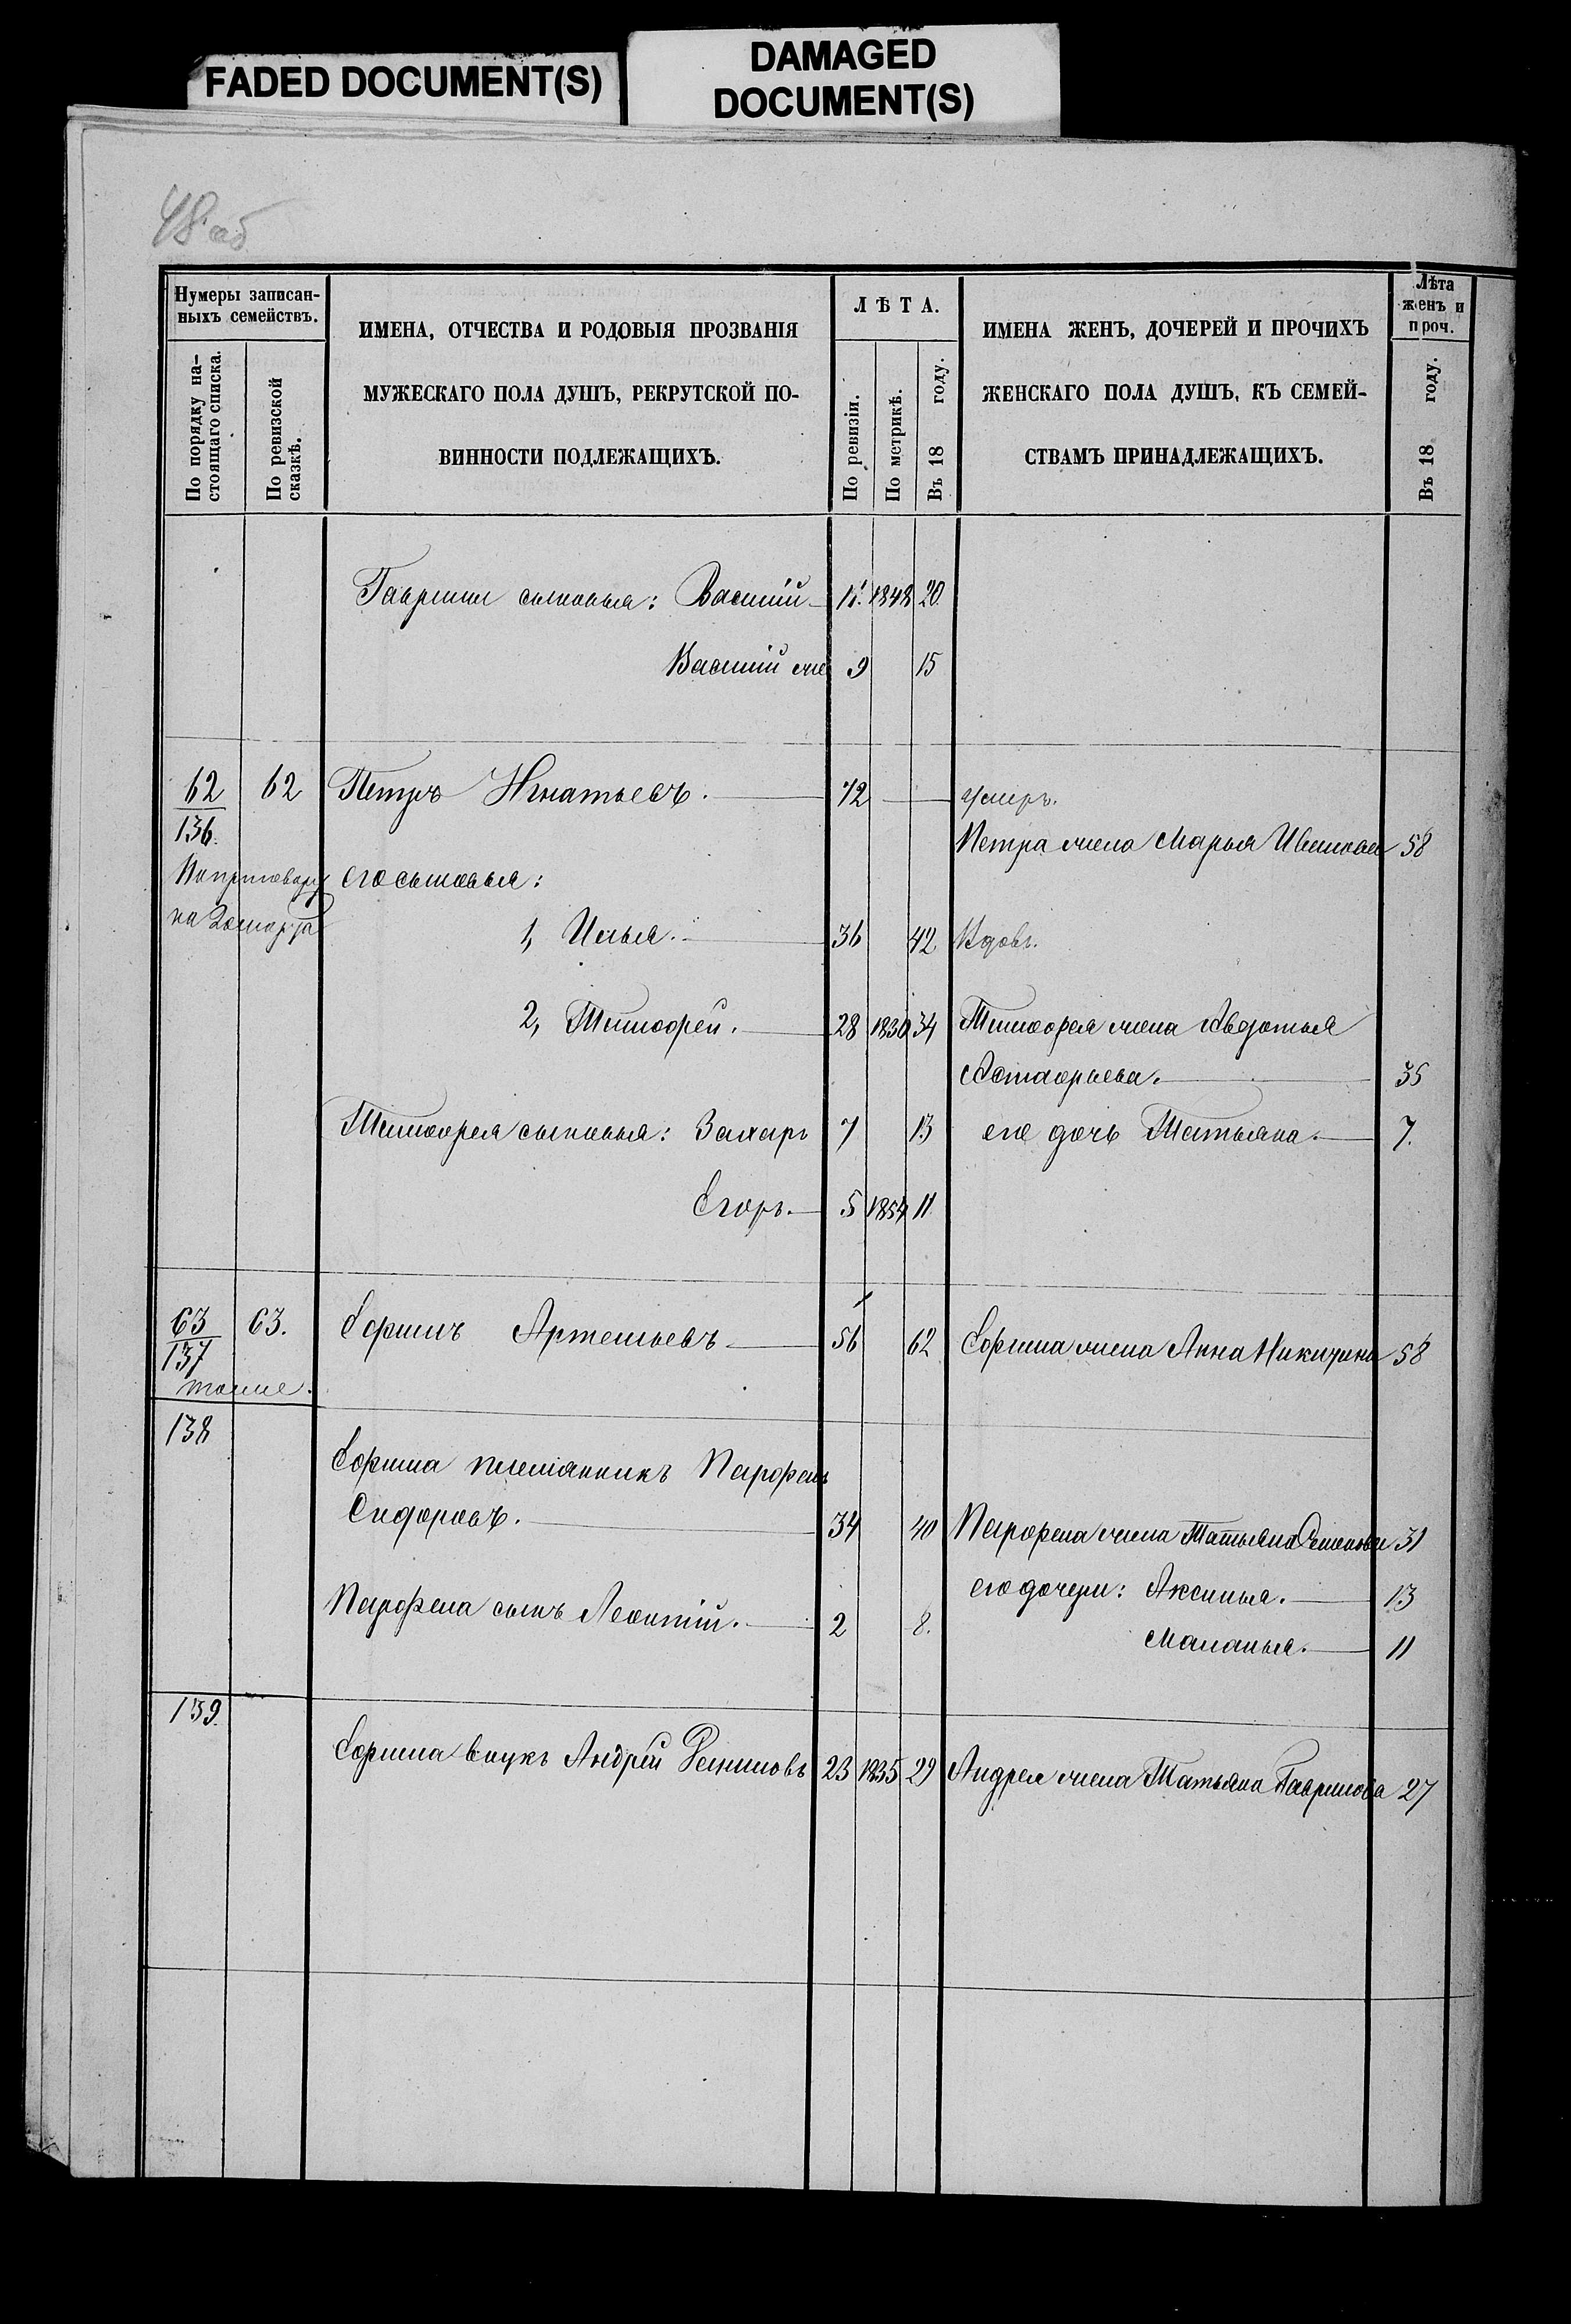 FADED DOCUMENT(S)
DAMAGED
DOCUMENT(S)
48 об
Нумеры записан-
ныхъ семействъ.
По порядку на-
стоящаго списка.
По ревизской
сказкѣ.
ИМЕНА, ОТЧЕСТВА И РОДОВЫЯ ПРОЗВАНІЯ
МУЖЕСКАГО ПОЛА ДУШЪ, РЕКРУТСКОЙ ПО-
ВИННОСТИ ПОДЛЕЖАЩИХЪ.
ЛѢТА.
По ревизіи.
По метрикѣ.
Въ 18 году.
ИМЕНА ЖЕНЪ, ДОЧЕРЕЙ И ПРОЧИХЪ
ЖЕНСКАГО ПОЛА ДУШЪ, КЪ СЕМЕЙ-
СТВАМЪ ПРИНАДЛЕЖАЩИХЪ.
Лѣта
женъ и
проч.
Въ 18 году.
Гаврилы сыновья: Василій 20
Василій 9 15
62 62 Петръ Игнатьевъ. 72 умеръ.
136. Петра жена Марья Иванова 58
его сыновья:
1, Илья. 36 42 Вдовъ.
2, Тимофей. 28 1830 34 Тимофея жена Авдотья
Астафьева. 35
Тимофея сыновья: Захаръ 7 13 его дочь Татьяна. 7.
Егоръ. 5 1854 11
63 63. Ефимъ Артемьевъ 56 62 Ефима жена Анна Никитина 58
137
тоже.
138
Ефима племянникъ Парфенъ
Сидоровъ. 34 40 Парфена жена Татьяна Семенова 31
его дочери: Аксинья. 13
Парфена сынъ Леонтій. 2 8.
Маланья. 11
139.
Ефима внукъ Андрей 23 1835 29 Андрея жена Татьяна Гаврилова 27